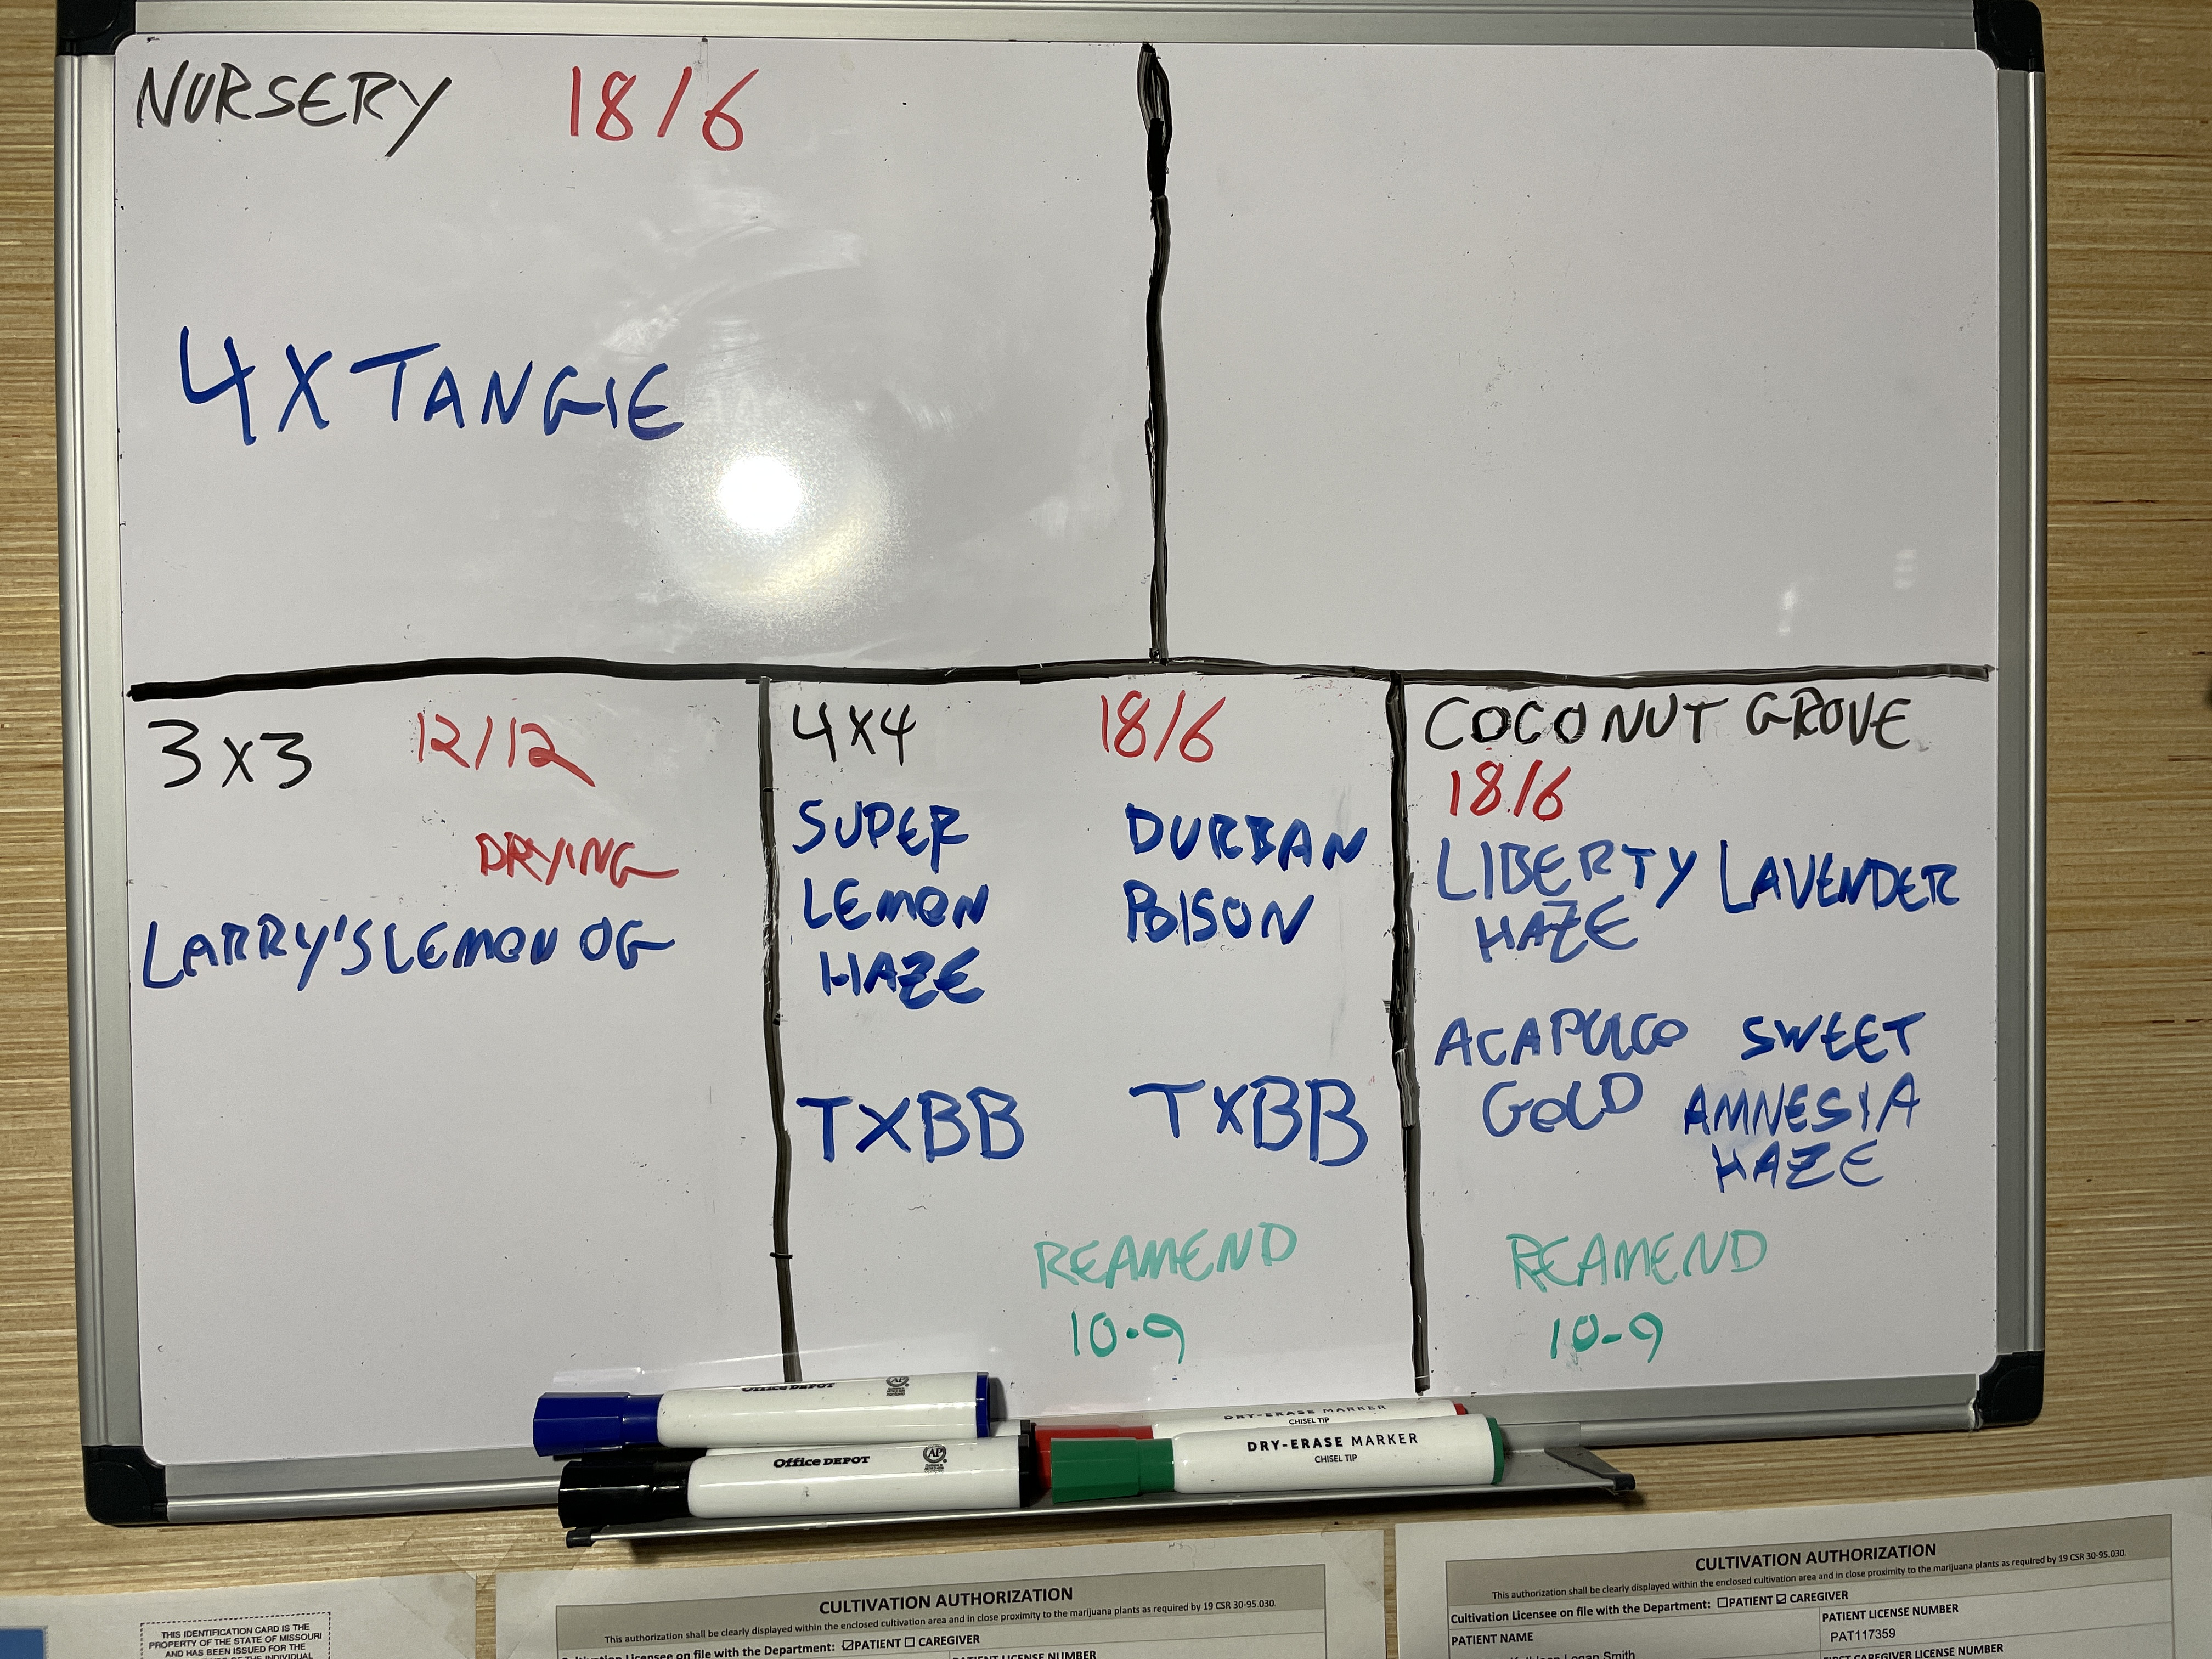 NURSERY 18/6
4 X TANGIE
3 X 3 12/12
DRYING
LARRY'S LEMON OG
4X4 18/6
SUPER
LEMON
HAZE
DURBAN
POISON
TXBB TXBB
REAMEND
10-9
COCONUT GROVE
18/6
LIBERTY
HAZE
LAVENDER
ACAPULCO
GOLD
SWEET
AMNESIA
HAZE
REAMEND
10-9
Office DEPOT
Office DEPOT
AP
DRY-ERASE MARKER
CHISEL TIP
DRY-ERASE MARKER
CHISEL TIP
THIS IDENTIFICATION CARD IS THE
PROPERTY OF THE STATE OF MISSOURI
AND HAS BEEN ISSUED FOR THE
OF THE INDIVIDUAL
CULTIVATION AUTHORIZATION
This authorization shall be clearly displayed within the enclosed cultivation area and in close proximity to the marijuana plants as required by 19 CSR 30-95.030.
Cultivation Licensee on file with the Department: ☑PATIENT ☐ CAREGIVER
PATIENT LICENSE NUMBER
CULTIVATION AUTHORIZATION
This authorization shall be clearly displayed within the enclosed cultivation area and in close proximity to the marijuana plants as required by 19 CSR 30-95.030.
Cultivation Licensee on file with the Department: ☐PATIENT ☑ CAREGIVER
PATIENT NAME
PATIENT LICENSE NUMBER
PAT117359
Logan Smith
FIRST CAREGIVER LICENSE NUMBER